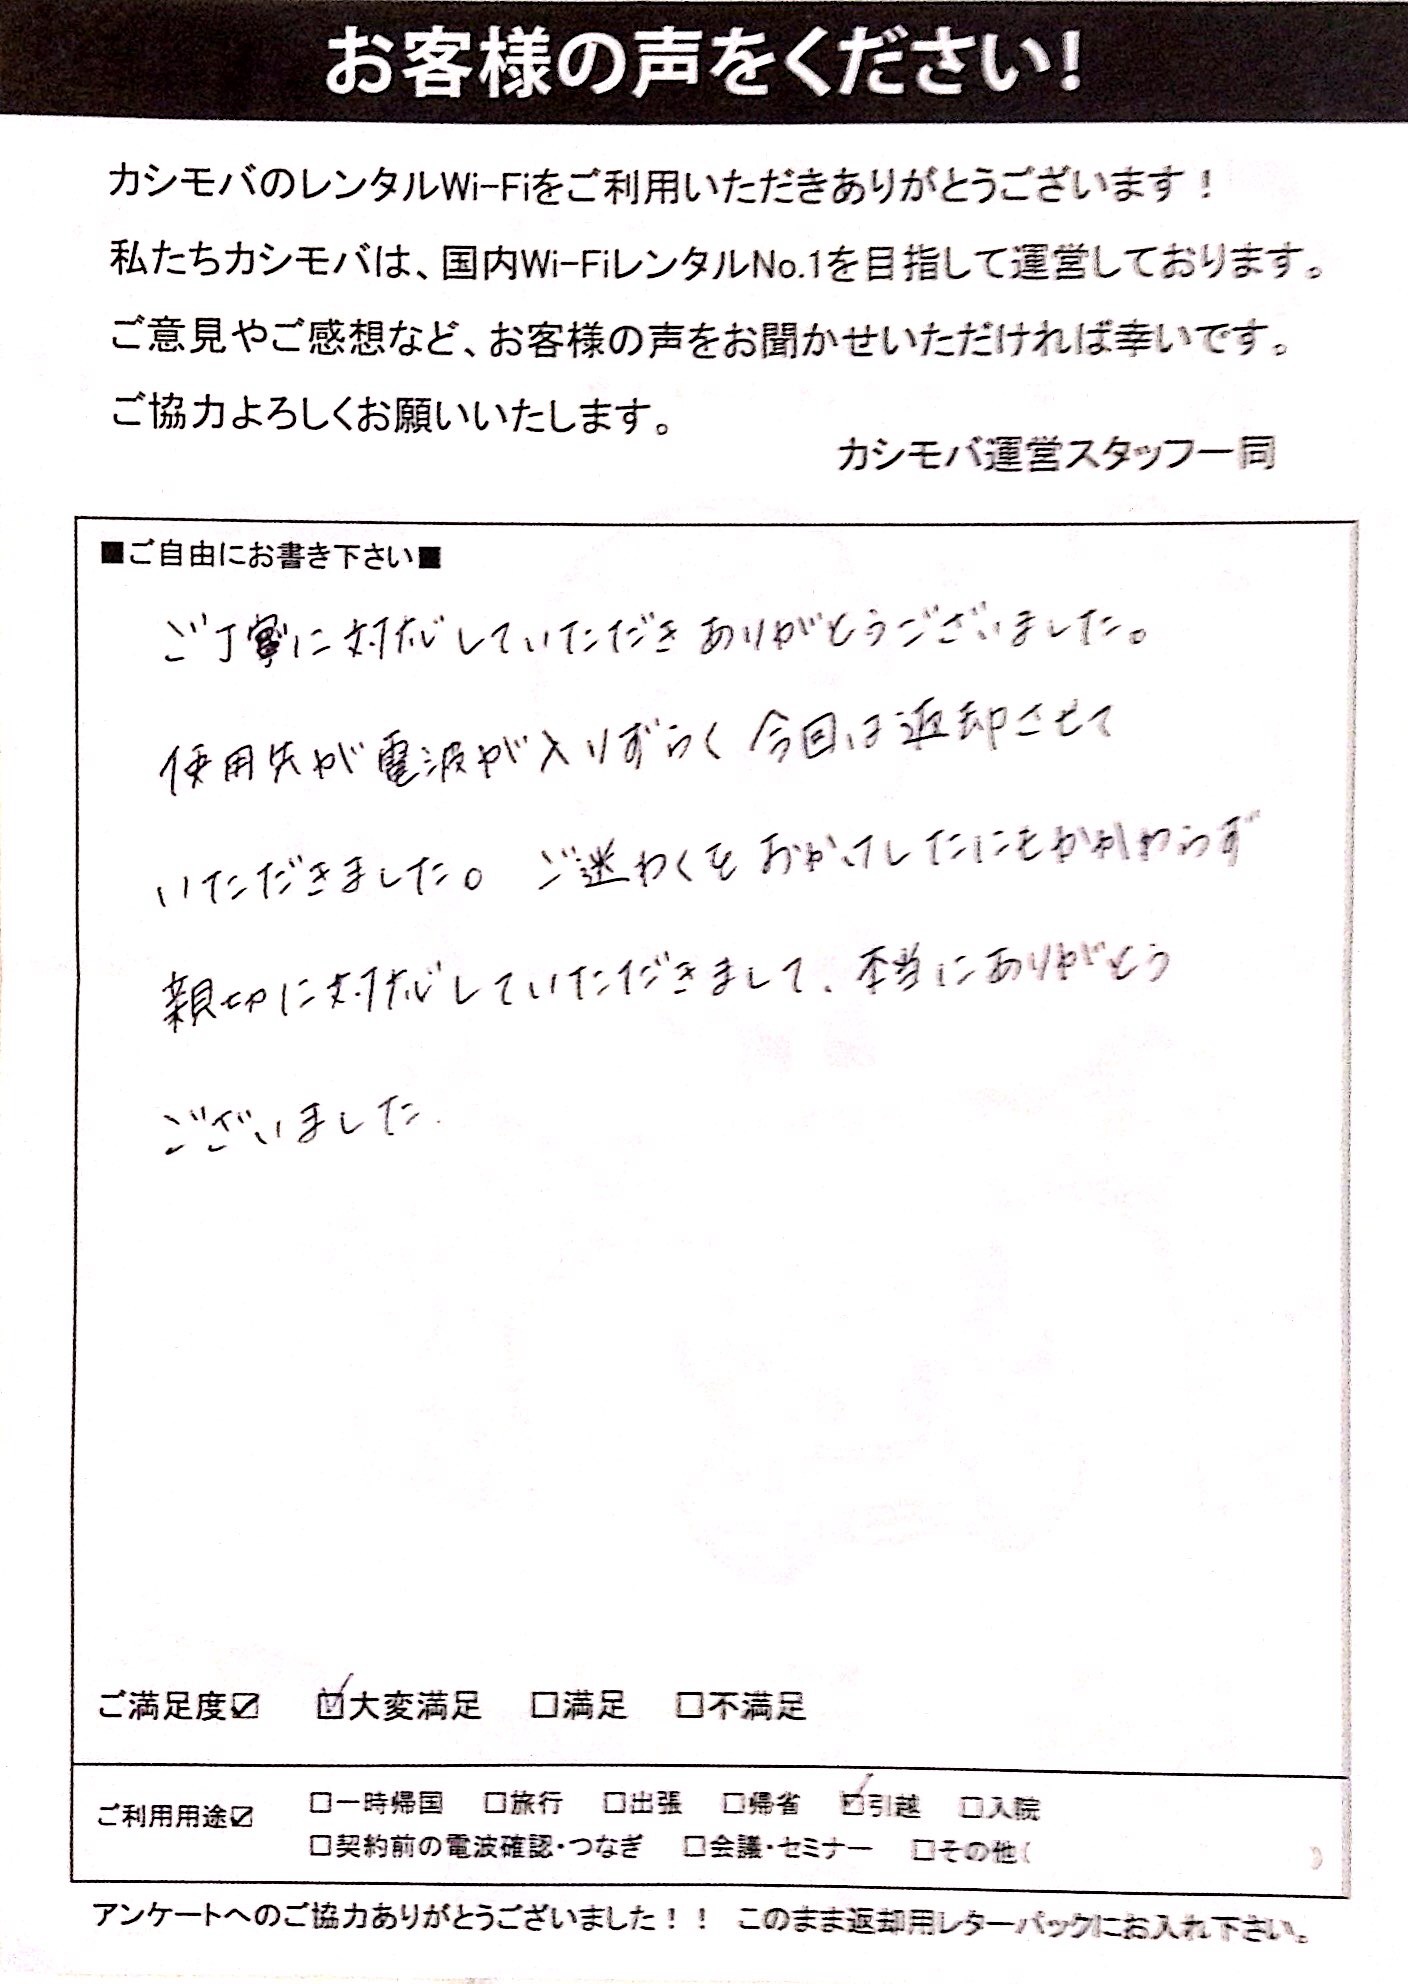 お客様の声をください!
カシモバのレンタルWi-Fiをご利用いただきありがとうございます!
私たちカシモバは、国内Wi-FiレンタルNo.1を目指して運営しております。
ご意見やご感想など、お客様の声をお聞かせいただければ幸いです。
ご協力よろしくお願いいたします。
カシモバ運営スタッフ一同
■ご自由にお書き下さい■
ご丁寧に対応していただきありがとうございました。
使用先が電波が入りずらく今回は返却させて
いただきました。ご迷わくをおかけしたにもかかわらず
親切に対応していただきまして、本当にありがとう
ございました.
ご満足度☑ ☑大変満足 □満足 □不満足
ご利用用途☑ □一時帰国 □旅行 □出張 □帰省 ☑引越 □入院
□契約前の電波確認・つなぎ □会議・セミナー □その他( )
アンケートへのご協力ありがとうございました!! このまま返却用レターパックにお入れ下さい。